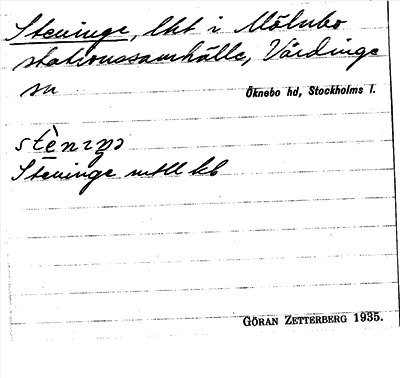 Steninge, lht i Mölnbo
stationssamhälle, Vårdinge
sn
Öknebo hd, Stockholms l.
Steninge mtll kb
GÖRAN ZETTERBERG 1935.